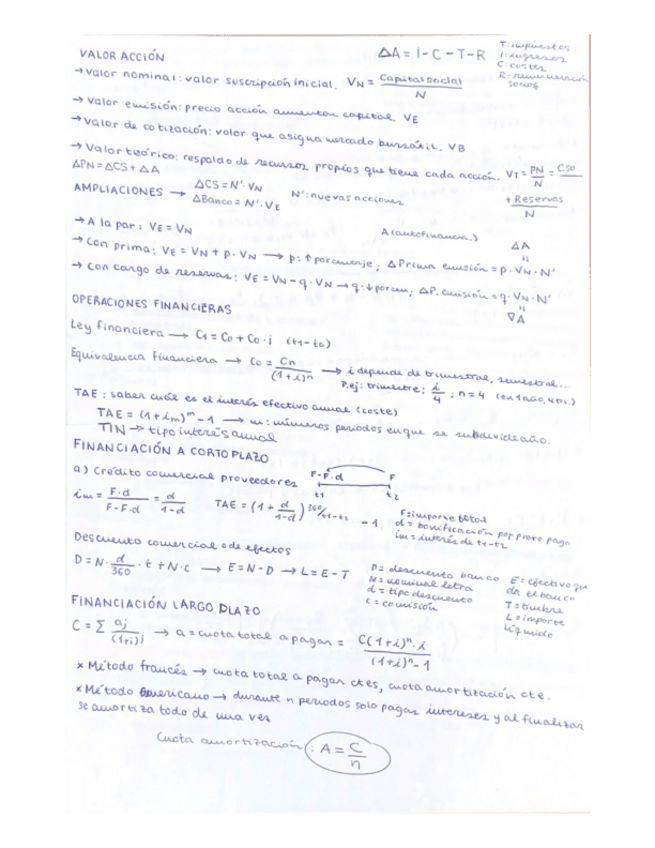 VALOR ACCIÓN
ΔA = I - C - T - R
T: impuestos
I: ingresos
C: costes
R: remuneración
socios
→ Valor nominal: valor suscripción inicial. VN = Capital social / N
→ Valor emisión: precio acción aumentan capital. VE
→ Valor de cotización: valor que asigna mercado bursátil. VB
→ Valor teórico: respaldo de recursos propios que tiene cada acción. VT = PN / N = CSO + Reservas / N
ΔPN = ΔCS + ΔA
AMPLIACIONES → ΔCS = N'·VN
ΔBanco = N'·VE
N': nuevas acciones
→ A la par: VE = VN
A (autofinancia.)
ΔA
=
→ Con prima: VE = VN + p·VN → p: ↑ porcentaje; ΔPrima emisión = p·VN·N'
→ Con cargo de reservas: VE = VN - q·VN → q: ↓ porcen; ΔP. emisión = q·VN·N'
=
∇A
OPERACIONES FINANCIERAS
Ley financiera → C1 = C0 + C0·i (t1 - t0)
Equivalencia financiera → C0 = Cn / (1+i)^n → i depende de trimestral, semestral...
P.ej: trimestre: i/4 ; n = 4 (en 1 año, 4 tri.)
TAE: saber cuál es el interés efectivo anual (coste)
TAE = (1 + im)^m - 1 → m: números periodos en que se subdivide año.
TIN → tipo interés anual
FINANCIACIÓN A CORTO PLAZO
a) Crédito comercial proveedores
F-F·d F
t1 t2
im = F·d / F-F·d = d / 1-d
TAE = (1 + d / 1-d)^360/t1-t2 - 1
F = importe total
d = bonificación por pronto pago
im = interés de t1-t2
Descuento comercial o de efectos
D = N · d/360 · t + N·c → E = N - D → L = E - T
D = descuento banco
N = nominal letra
d = tipo descuento
c = comisión
E = efectivo que
da el banco
T = timbre
L = importe
líquido
FINANCIACIÓN LARGO PLAZO
C = Σ aj / (1+i)j → a = cuota total a pagar = C(1+i)^n·i / (1+i)^n - 1
* Método francés → cuota total a pagar ctes, cuota amortización cte.
* Método americano → durante n periodos solo pagas intereses y al finalizar
se amortiza todo de una vez
Cuota amortización: A = C / n